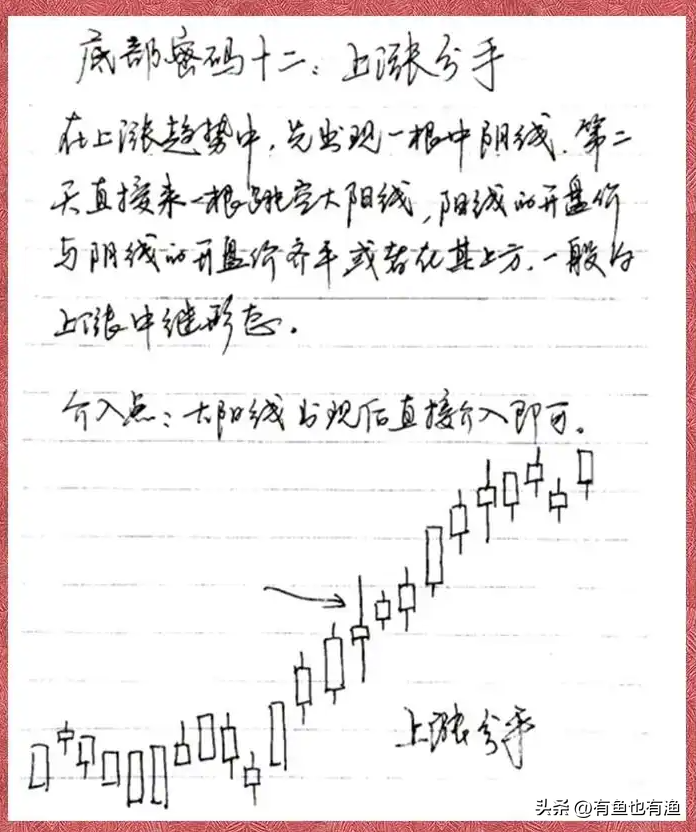 底部密码十二：上涨分手
在上涨趋势中，先出现一根中阴线，第二
天直接来一根跳空大阳线，阳线的开盘价
与阴线的开盘价齐平或者在其上方，一般为
上涨中继形态。
介入点：大阳线出现后直接介入即可。
上涨分手
头条 @有鱼也有渔